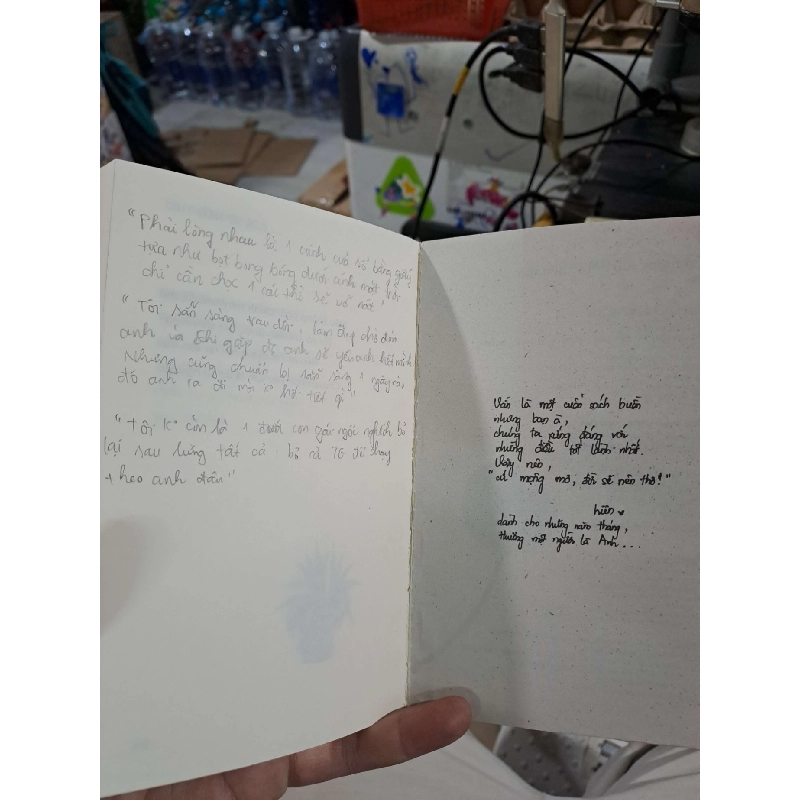 "Phải lòng nhau là 1 cánh cửa sổ bằng giấy
tựa như bọt bong bóng dưới ánh mặt trời
chỉ cần chọc 1 cái thì sẽ vỡ nát"
"Tôi sẵn sàng trau dồi, làm đẹp chờ đón
anh và khi gặp dc anh sẽ yêu anh hết mình
Nhưng cũng chuẩn bị sẵn sàng 1 ngày nào
đó anh ra đi mà hết tiết gì"
"Tôi k còn là 1 đứa con gái ngốc nghếch bỏ
lại sau lưng tất cả để chạy
theo anh đâu"
Vẫn là một cuốn sách buồn
nhưng bạn à,
chúng ta xứng đáng với
những điều tốt lành nhất.
Vậy nên,
"cứ mộng mơ, đời sẽ nên thơ!"
hiên
dành cho những năm tháng,
thương một người là Anh...